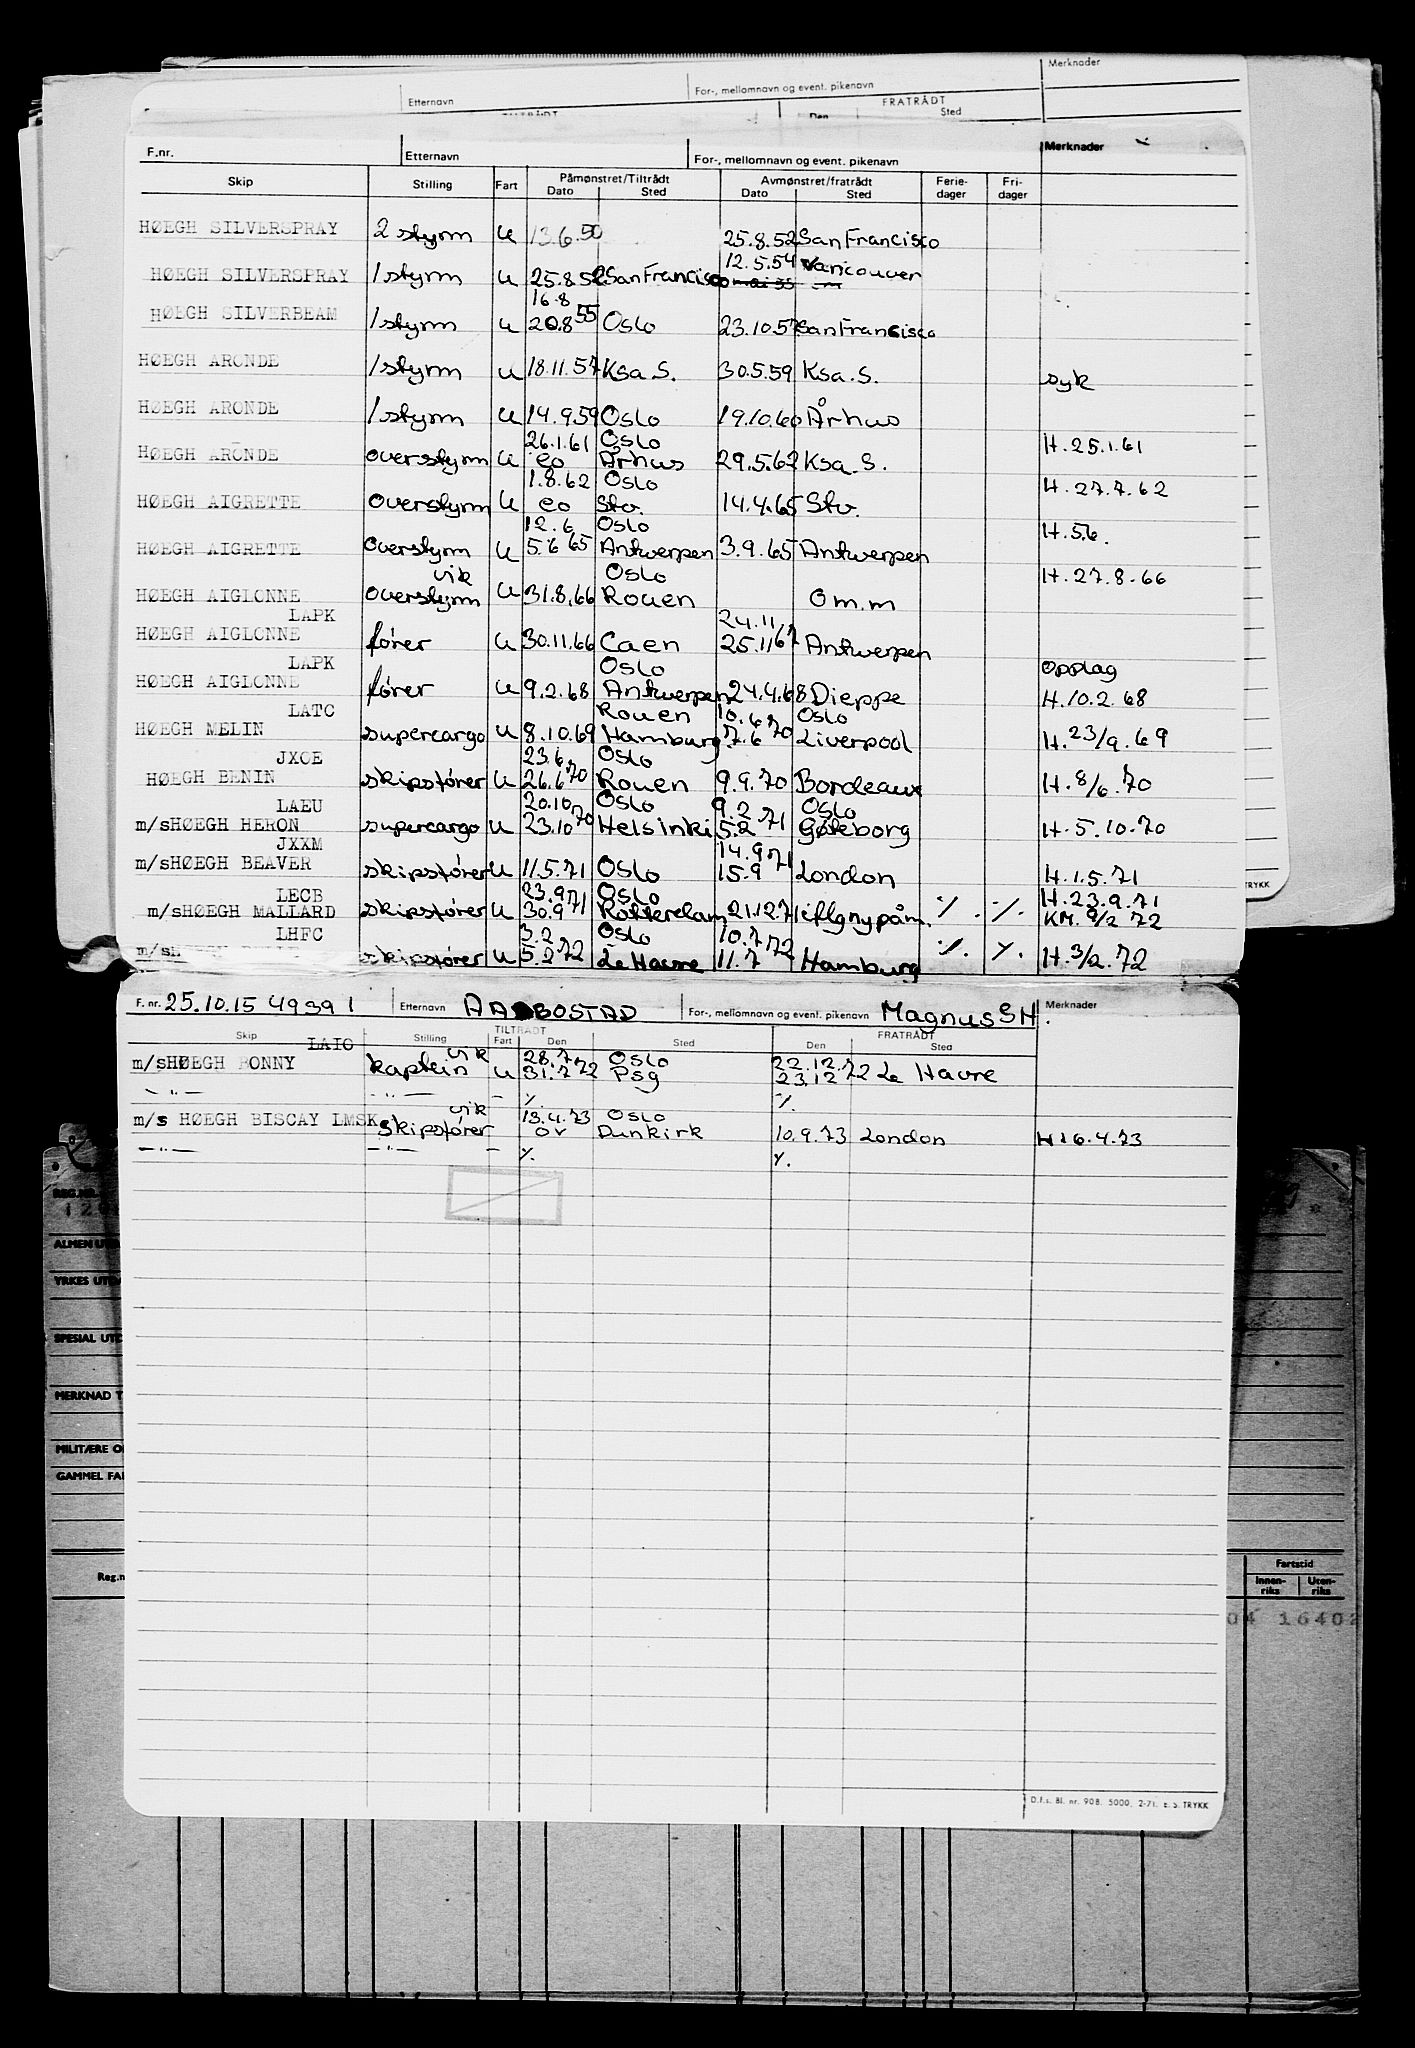 Merknader
Etternavn For-, mellomnavn og event. pikenavn
FRATRÅDT
Den Sted
F.nr. Etternavn For-, mellomnavn og event. pikenavn Merknader
Skip Stilling Fart Påmønstret/Tiltrådt Avmønstret/fratrådt Ferie-dager Fri-dager
Dato Sted Dato Sted
HØEGH SILVERSPRAY 2 styrm U 13.6.50 25.8.52 San Francisco
12.5.54 Vancouver
HØEGH SILVERSPRAY 1 styrm U 25.8.52 San Francisco mai 55
16.8
HØEGH SILVERBEAM 1 styrm U 20.8 55 Oslo 23.10.57 San Francisco
HØEGH ARONDE 1 styrm U 18.11.57 Ksa.S. 30.5.59 Ksa.S. syk
HØEGH ARONDE 1 styrm U 14.9.59 Oslo 19.10.60 Århus
26.1.61 Oslo
HØEGH ARONDE overstyrm U eo Århus 29.5.62 Ksa.S. H.25.1.61
1.8.62 Oslo
HØEGH AIGRETTE overstyrm U eo Stv. 14.4.65 Stv. H.27.7.62
12.6 Oslo
HØEGH AIGRETTE overstyrm U 5.6 65 Antwerpen 3.9.65 Antwerpen H.5.6.
vik Oslo
HØEGH AIGLONNE overstyrm U 31.8.66 Rouen Om.m H.27.8.66
LAPK 24.11
HØEGH AIGLONNE fører U 30.11.66 Caen 25.11 67 Antwerpen
LAPK Oslo Opplag
HØEGH AIGLONNE fører U 9.2.68 Antwerpen 24.4.68 Dieppe H.10.2.68
LATC Rouen 10.6 Oslo
HØEGH MELIN supercargo U 8.10.69 Hamburg 7.6 70 Liverpool H.23/9.69
JXOE 23.6 Oslo
HØEGH BENIN skipsfører U 26.6 70 Rouen 9.9.70 Bordeaux H.8/6.70
LAEU 20.10 Oslo 9.2 Oslo
m/sHØEGH HERON supercargo U 23.10 70 Helsinki 5.2 71 Gøteborg H.5.10.70
JXXM 14.9 71
m/sHØEGH BEAVER skipsfører U 11.5.71 Oslo 15.9 London H.1.5.71
LECB 23.9 71 Oslo H.23.9.71
m/sHØEGH MALLARD skipsfører U 30.9 Rotterdam 21.12.71 iflg nypåm. %. %. KM.9/2 72
LHFC 3.2 Oslo 10.7
m/s skipsfører U 5.2 72 Le Havre 11.7 72 Hamburg %. %. H.3/2.72
F. nr. 25.10.15 49391 Etternavn AABOSTAD For-, mellomnavn og event. pikenavn Magnus S H. Merknader
Skip Stilling TILTRÅDT Fart Den Sted FRATRÅDT Den Sted
LAIO vik 28.7 Oslo 22.12
m/sHØEGH BONNY kaptein U 31.7 72 Psg 23.12 72 Le Havre
— " — — " — — %. %.
vik 13.4.73 Oslo
m/s HØEGH BISCAY LMSK skipsfører ov Dunkirk 10.9.73 London H 16.4.73
— " — — " — — %. %.
D.f.s. Bl. nr. 908. 5000, 2-71. E.S. TRYKK
TRYKK
REG.NR.
ALMEN U
YRKES UTD
SPESIAL UTD
MERKNAD T
MILITÆRE O
GAMMEL FA
Reg.n
Fartstid
Innen-riks Uten-riks
04 16402